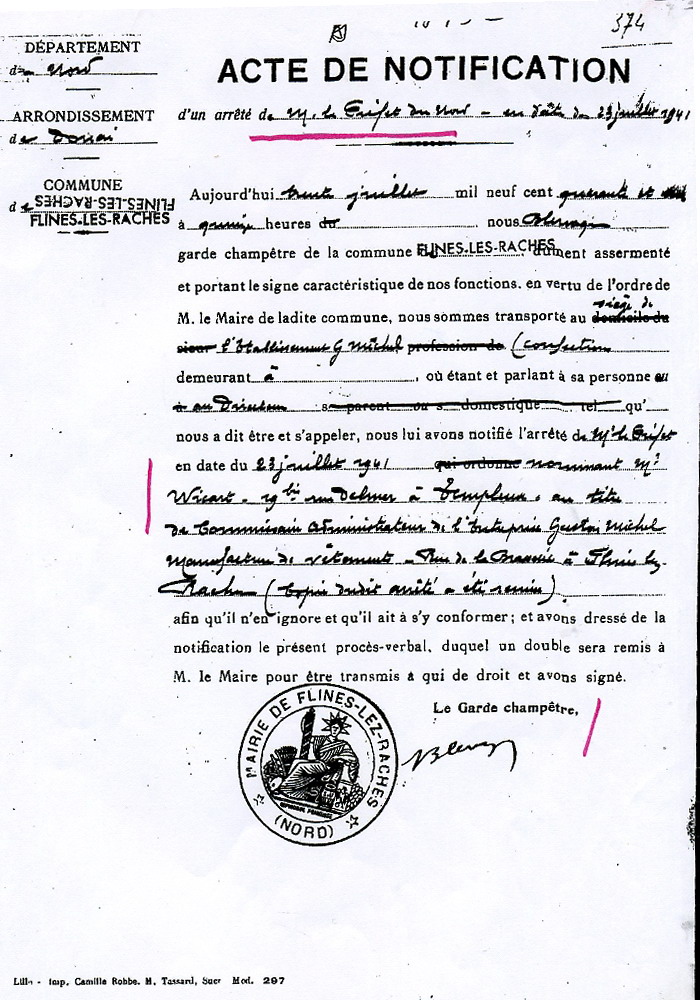 374
DÉPARTEMENT
du Nord
ACTE DE NOTIFICATION
ARRONDISSEMENT
de Douai
d'un arrêté de M. le Préfet du Nord - en date du 23 juillet 1941
COMMUNE
de FLINES-LES-RACHES
FLINES-LES-RACHES
Aujourd'hui trente juillet mil neuf cent quarante et
à quinze heures du nous
garde champêtre de la commune FLINES-LES-RACHES dûment assermenté
et portant le signe caractéristique de nos fonctions, en vertu de l'ordre de
siège de
M. le Maire de ladite commune, nous sommes transporté au domicile du
sieur l'Etablissement G Michel profession de (confection
demeurant à , où étant et parlant à sa personne ou
à au Directeur s parent ou s domestique tel qu'
nous a dit être et s'appeler, nous lui avons notifié l'arrêté de M. le Préfet
en date du 23 juillet 1941 qui ordonne nommant Mr
Wicart - 19 bis rue Delmer à Templeuve - au titre
de Commissaire Administrateur de l'Entreprise Gaston Michel
Manufacture de vêtements - Rue de la Brasserie à Flines lez
Raches (Copie dudit arrêté a été remise)
afin qu'il n'en ignore et qu'il ait à s'y conformer ; et avons dressé de la
notification le présent procès-verbal, duquel un double sera remis à
M. le Maire pour être transmis à qui de droit et avons signé.
Le Garde champêtre,
MAIRIE DE FLINES-LEZ-RACHES
(NORD)
Lille - Imp. Camille Robbe. M. Tassard, Sucr Mod. 297